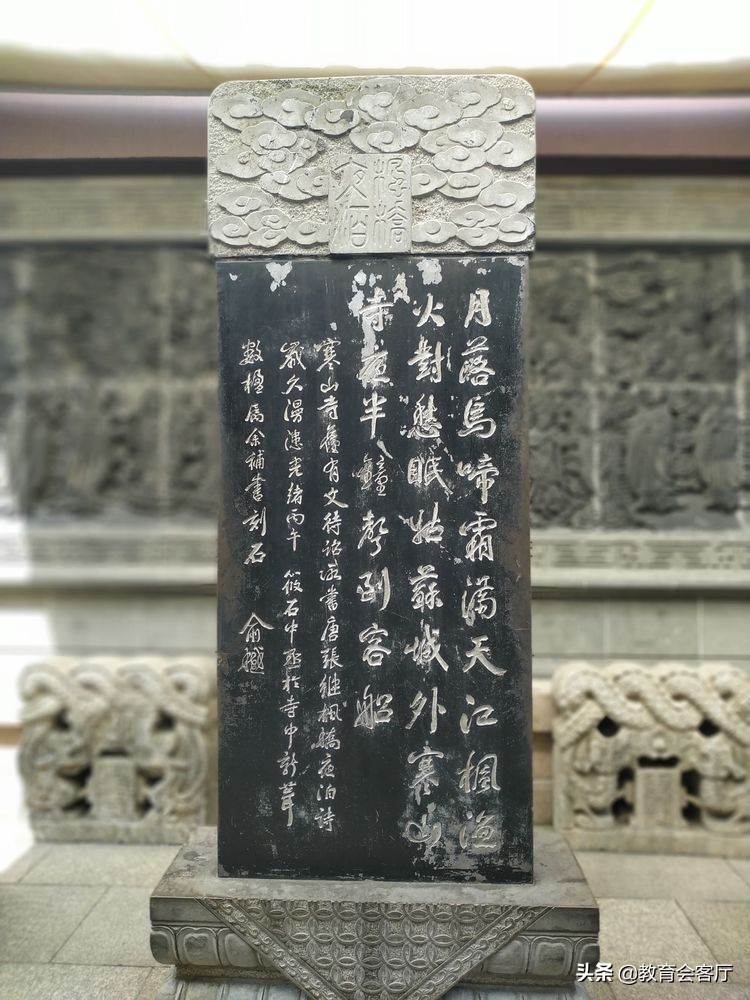 楓橋
夜泊
月落烏啼霜滿天江楓漁
火對愁眠姑蘇城外寒山
寺夜半鐘聲到客船
寒山寺舊有文待詔所書唐張繼楓橋夜泊詩
歲久漫漶光緒丙午筱石中丞於寺中新葺
數楹屬余補書刻石 俞樾
头条 @教育会客厅